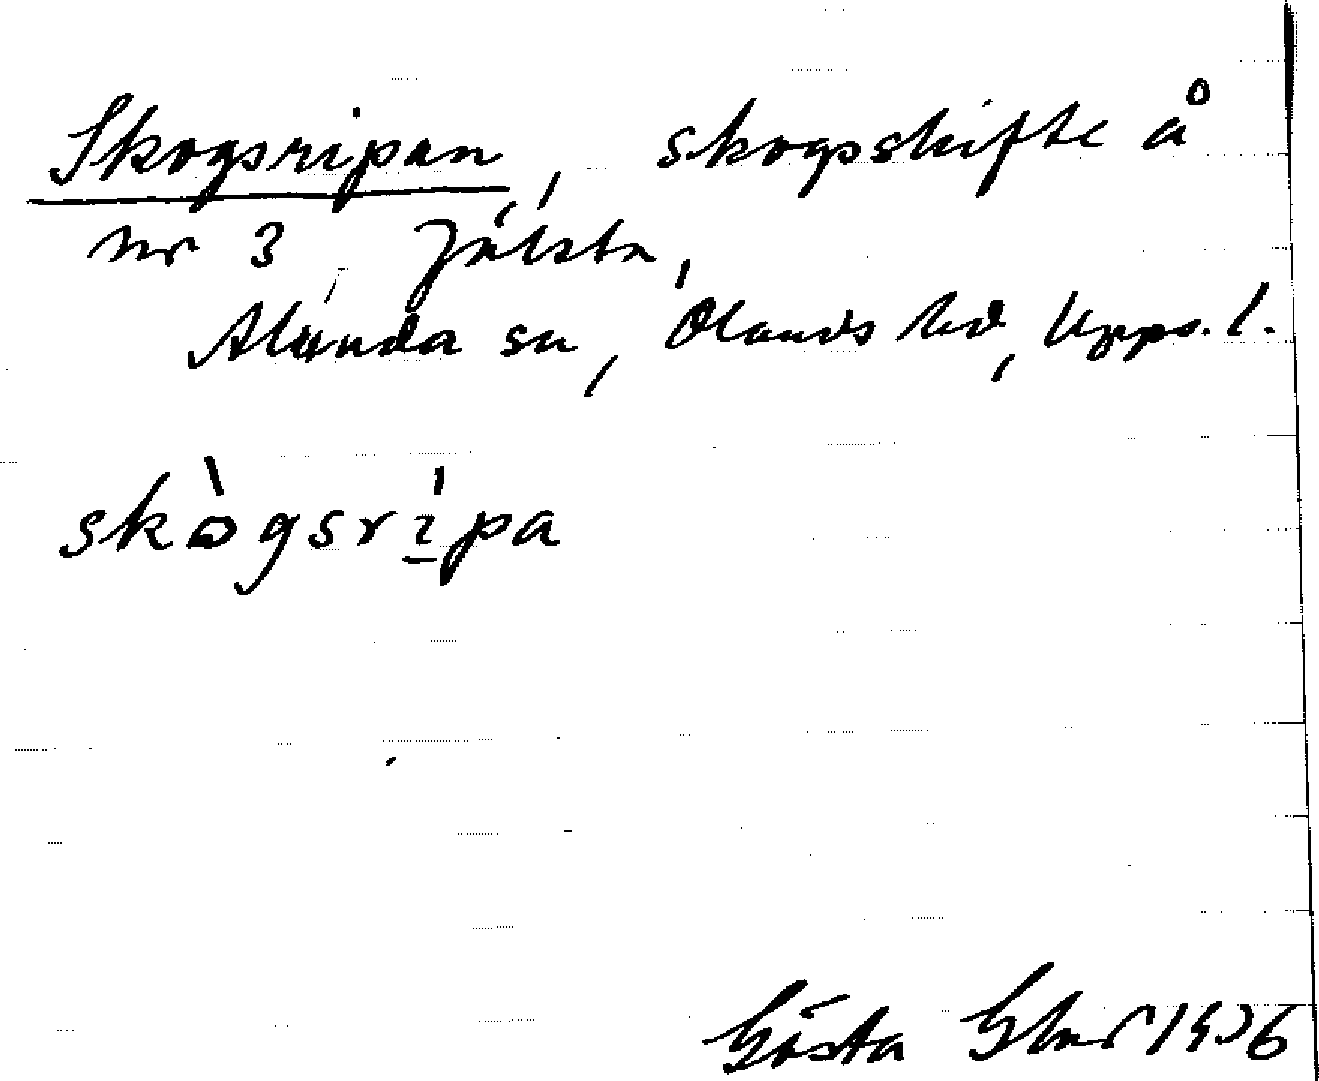 Skogsripan, skogsskifte å
nr 3 Jälsta,
Alunda sn, Olands hd, Upps. l.
skògsrìpa
Gösta